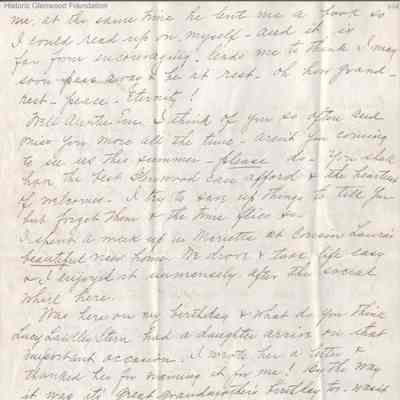 Historic Glenwood Foundation
me, at the same time he lent me a book so
I could read up on myself - and it is
far from encouraging - leads me to think I may
soon pass away & be at rest - oh how grand -
rest - peace - Eternity!
Well Auntie Em I think of you so often and
miss you more all the time - aren't you coming
to see us this summer - please do - You shall
have the best Glenwood can afford & the heartiest
of welcomes - I try to save up things to tell you
but forget them & the time flies so -
I spent a week up in Marietta at Cousin Laura's
beautiful new home. We drove & took life easy
& I enjoyed it immensely after the social
whirl here.
Was here on my birthday & what do you think
Lucy Stern had a daughter arrive on that
important occasion. I wrote her a letter &
thanked her for naming it for me! By the way
it was its great grandmother's birthday too - was